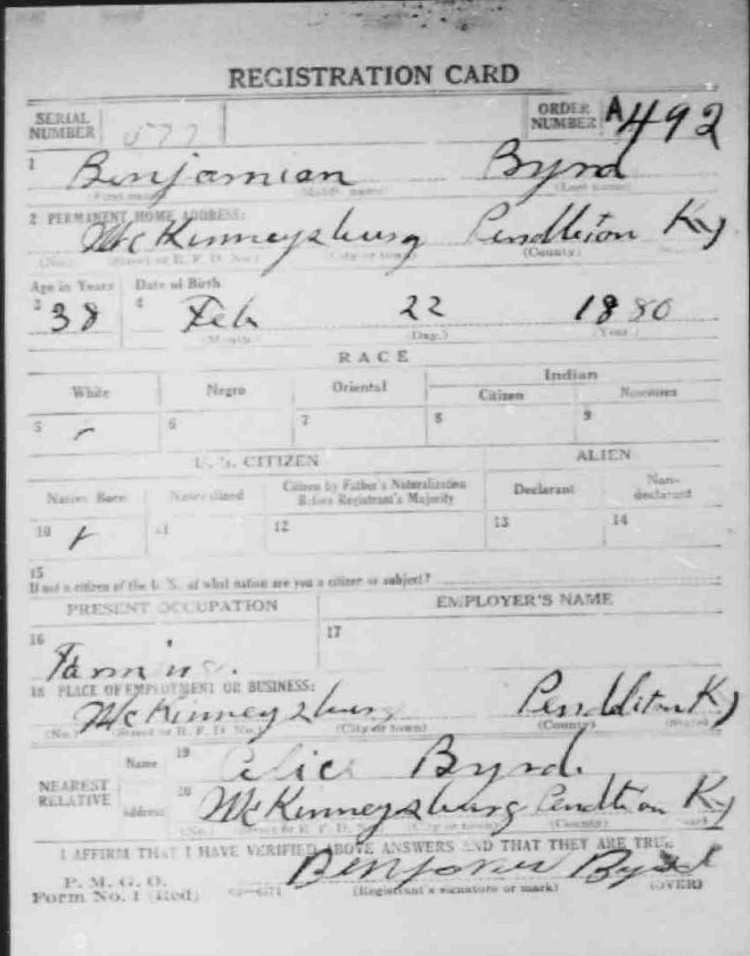 REGISTRATION CARD
SERIAL NUMBER 577 ORDER NUMBER A492
1 Benjamian Byrd
(First name) (Middle name) (Last name)
2 PERMANENT HOME ADDRESS:
McKinneysburg Pendleton Ky
(No.) (Street or R. F. D. No.) (City or town) (County)
Age in Years Date of Birth
3 38 4 Feb 22 1880
(Month.) (Day.) (Year.)
RACE
White Negro Oriental Indian
Citizen Noncitizen
5 6 7 8 9
U. S. CITIZEN ALIEN
Native Born Naturalized Citizen by Father's Naturalization Before Registrant's Majority Declarant Non-declarant
10 11 12 13 14
15
If not a citizen of the U. S. of what nation are you a citizen or subject?
PRESENT OCCUPATION EMPLOYER'S NAME
16 Farming. 17
18 PLACE OF EMPLOYMENT OR BUSINESS:
McKinneysburg Pendditon Ky
(No.) (Street or R. F. D. No.) (City or town) (County) (State)
NEAREST RELATIVE
Name 19 Alice Byrd.
Address 20 McKinneysburg Pendtion Ky
(No.) (Street or R. F. D. No.) (City or town) (County) (State)
I AFFIRM THAT I HAVE VERIFIED ABOVE ANSWERS AND THAT THEY ARE TRUE.
P. M. G. O.
Form No. 1 (Red) Byrd
(Registrant's signature or mark) (OVER)